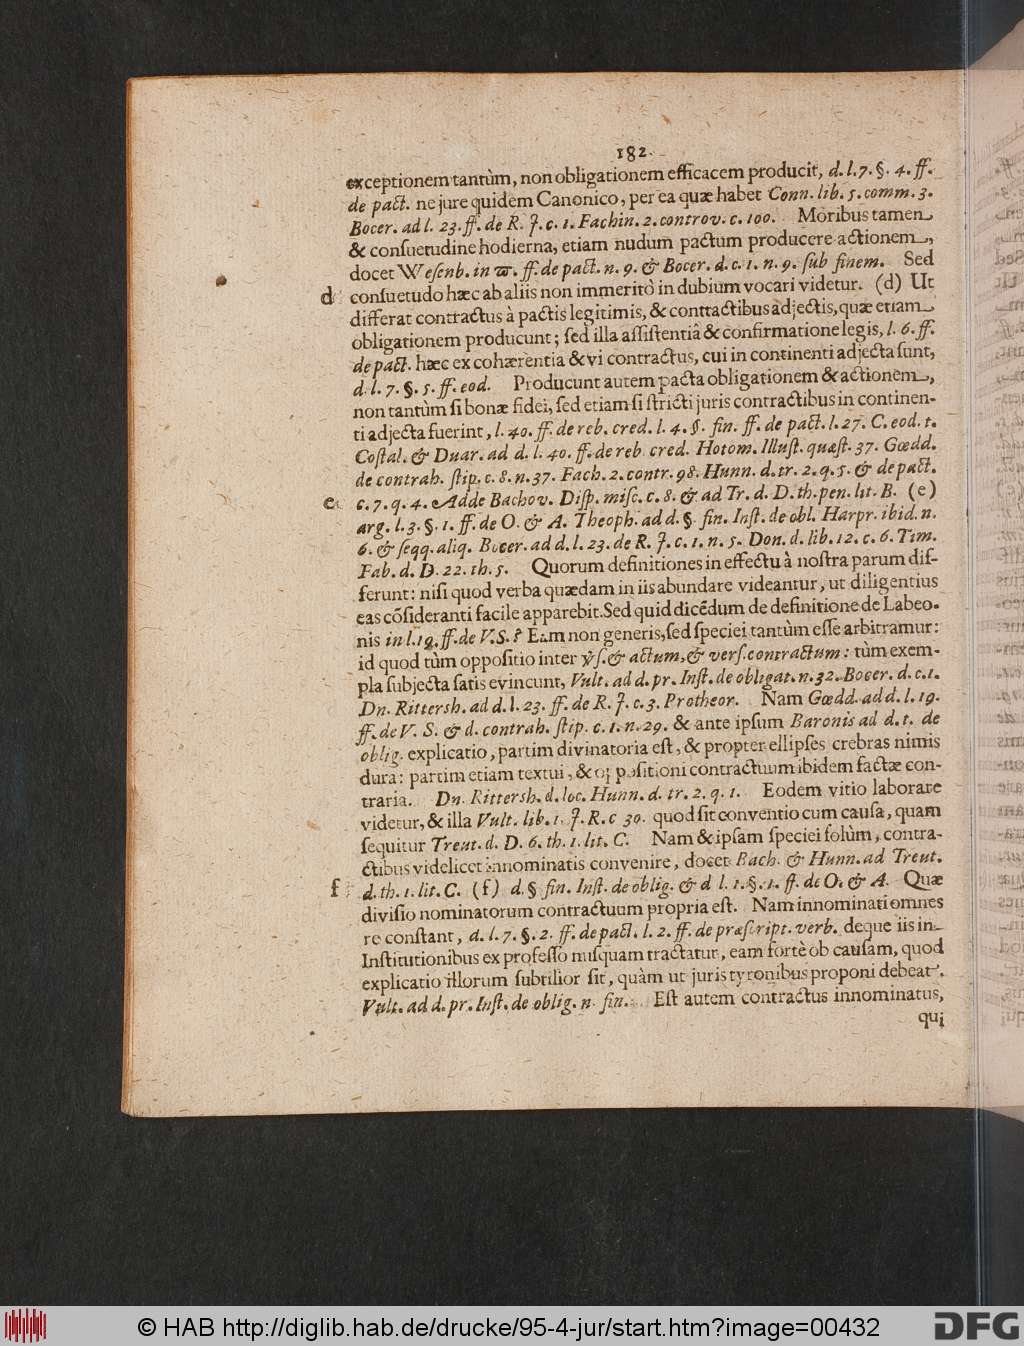 182.
exceptionem tantùm, non obligationem efficacem producit, d. l. 7. §. 4. ff.
de pact. ne jure quidem Canonico, per ea quæ habet Conn. lib. 5. comm. 3.
Bocer. ad l. 23. ff. de R. J. c. 1. Fachin. 2. controv. c. 100. Moribus tamen
& conſuetudine hodierna, etiam nudum pactum producere actionem,
docet Weſenb. in ϖ. ff. de pact. n. 9. & Bocer. d. c. 1. n. 9. ſub finem. Sed
d conſuetudo hæc ab aliis non immeritò in dubium vocari videtur. (d) Ut
differat contractus à pactis legitimis, & contractibus adjectis, quæ etiam
obligationem producunt; ſed illa aſſiſtentiâ & confirmatione legis, l. 6. ff.
de pact. hæc ex cohærentia & vi contractus, cui in continenti adjecta ſunt,
d. l. 7. §. 5. ff. eod. Producunt autem pacta obligationem & actionem,
non tantùm ſi bonæ fidei, ſed etiam ſi ſtricti juris contractibus in continen-
ti adjecta fuerint, l. 40. ff. de reb. cred. l. 4. §. fin. ff. de pact. l. 27. C. eod. t.
Coſtal. & Duar. ad d. l. 40. ff. de reb. cred. Hotom. Illuſt. quæſt. 37. Gœdd.
de contrah. ſtip. c. 8. n. 37. Fach. 2. contr. 98. Hunn. d. tr. 2. q. 5. & de pact.
e c. 7. q. 4. Adde Bachov. Diſp. miſc. c. 8. & ad Tr. d. D. th. pen. lit. B. (e)
arg. l. 3. §. 1. ff. de O. & A. Theoph. ad d. §. fin. Inſt. de obl. Harpr. ibid. n.
6. & ſeqq. aliq. Bocer. ad d. l. 23. de R. J. c. 1. n. 5. Don. d. lib. 12. c. 6. Tim.
Fab. d. D. 22. th. 5. Quorum definitiones in effectu à noſtra parum dif-
ferunt: niſi quod verba quædam in iis abundare videantur, ut diligentius
eas cõſideranti facile apparebit. Sed quid dicẽdum de definitione de Labeo-
nis in l. 19. ff. de V. S.? Eam non generis, ſed ſpeciei tantùm eſſe arbitramur:
id quod tùm oppoſitio inter ꝟſ. & actum, & verſ. contractum: tùm exem-
pla ſubjecta ſatis evincunt, Vult. ad d. pr. Inſt. de obligat. n. 32. Bocer. d. c. 1.
Dn. Rittersh. ad d. l. 23. ff. de R. J. c. 3. Protheor. Nam Gœdd. ad d. l. 19.
ff. de V. S. & d. contrah. ſtip. c. 1. n. 29. & ante ipſum Baronis ad d. t. de
oblig. explicatio, partim divinatoria eſt, & propter ellipſes crebras nimis
dura: partim etiam textui, & oppoſitioni contractuum ibidem factæ con-
traria. Dn. Rittersh. d. loc. Hunn. d. tr. 2. q. 1. Eodem vitio laborare
videtur, & illa Vult. lib. 1. J. R. c 30. quod ſit conventio cum cauſa, quam
ſequitur Treut. d. D. 6. th. 1. lit. C. Nam & ipſam ſpeciei ſolùm, contra-
ctibus videlicet innominatis convenire, docet Bach. & Hunn. ad Treut.
f d. th. 1. lit. C. (f) d. § fin. Inſt. de oblig. & d l. 1. §. 1. ff. de O. & A. Quæ
diviſio nominatorum contractuum propria eſt. Nam innominati omnes
re conſtant, d. l. 7. §. 2. ff. de pact. l. 2. ff. de præſcript. verb. deque iis in
Inſtitutionibus ex profeſſo nuſquam tractatur, eam fortè ob cauſam, quod
explicatio illorum ſubtilior ſit, quàm ut juris tyronibus proponi debeat.
Vult. ad d. pr. Inſt. de oblig. n. fin. Eſt autem contractus innominatus,
qui
© HAB http://diglib.hab.de/drucke/95-4-jur/start.htm?image=00432
DFG